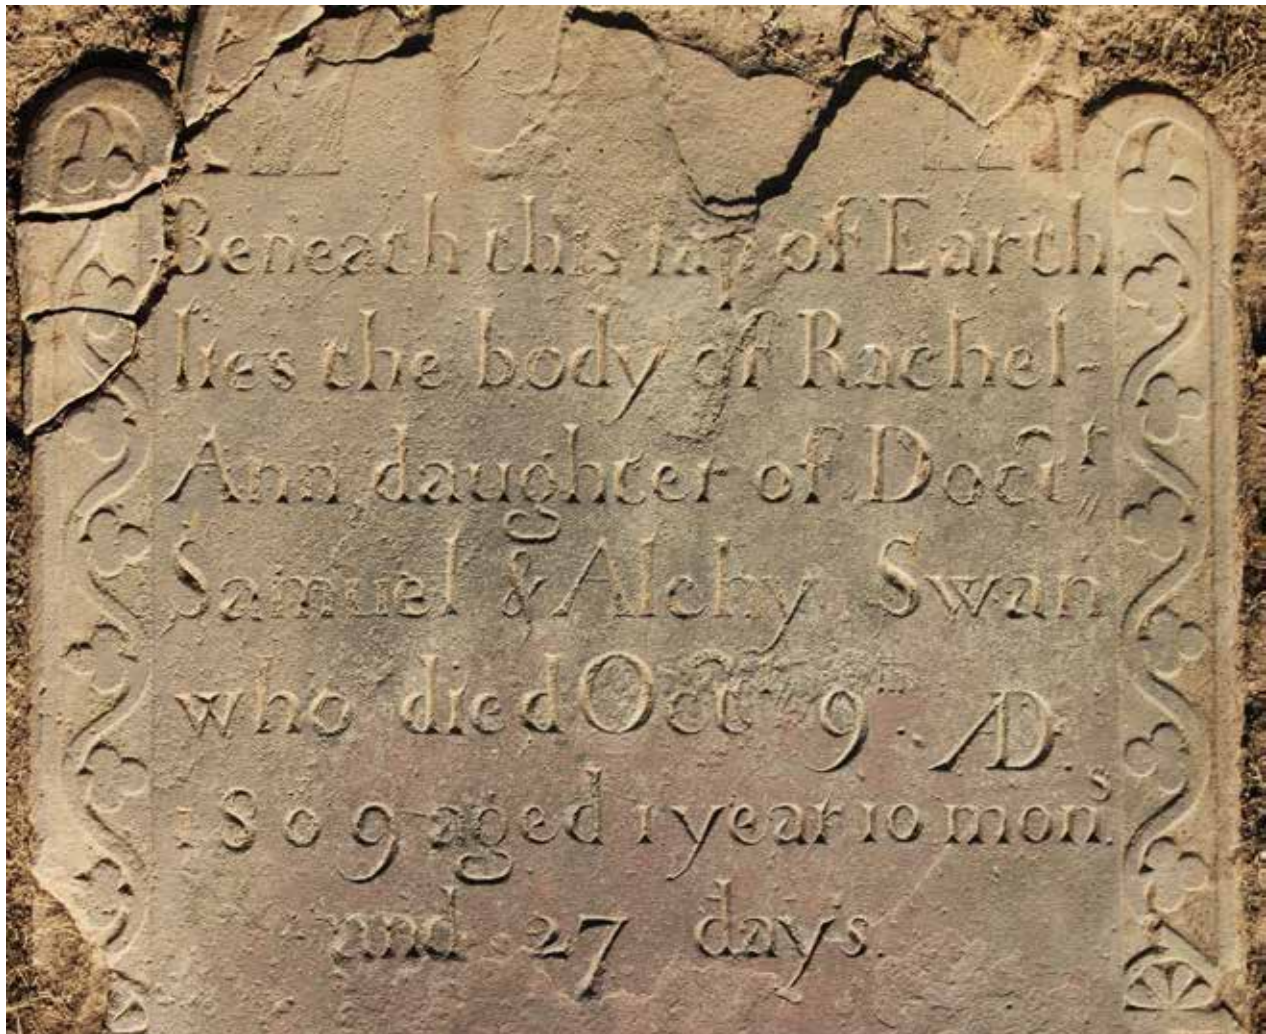 Beneath this lap of Earth
lies the body of Rachel-
Ann daughter of Doctʳ
Samuel & Alchy Swan
who died Oct 9 AD.
1809 aged 1 year 10 monˢ.
and 27 days.